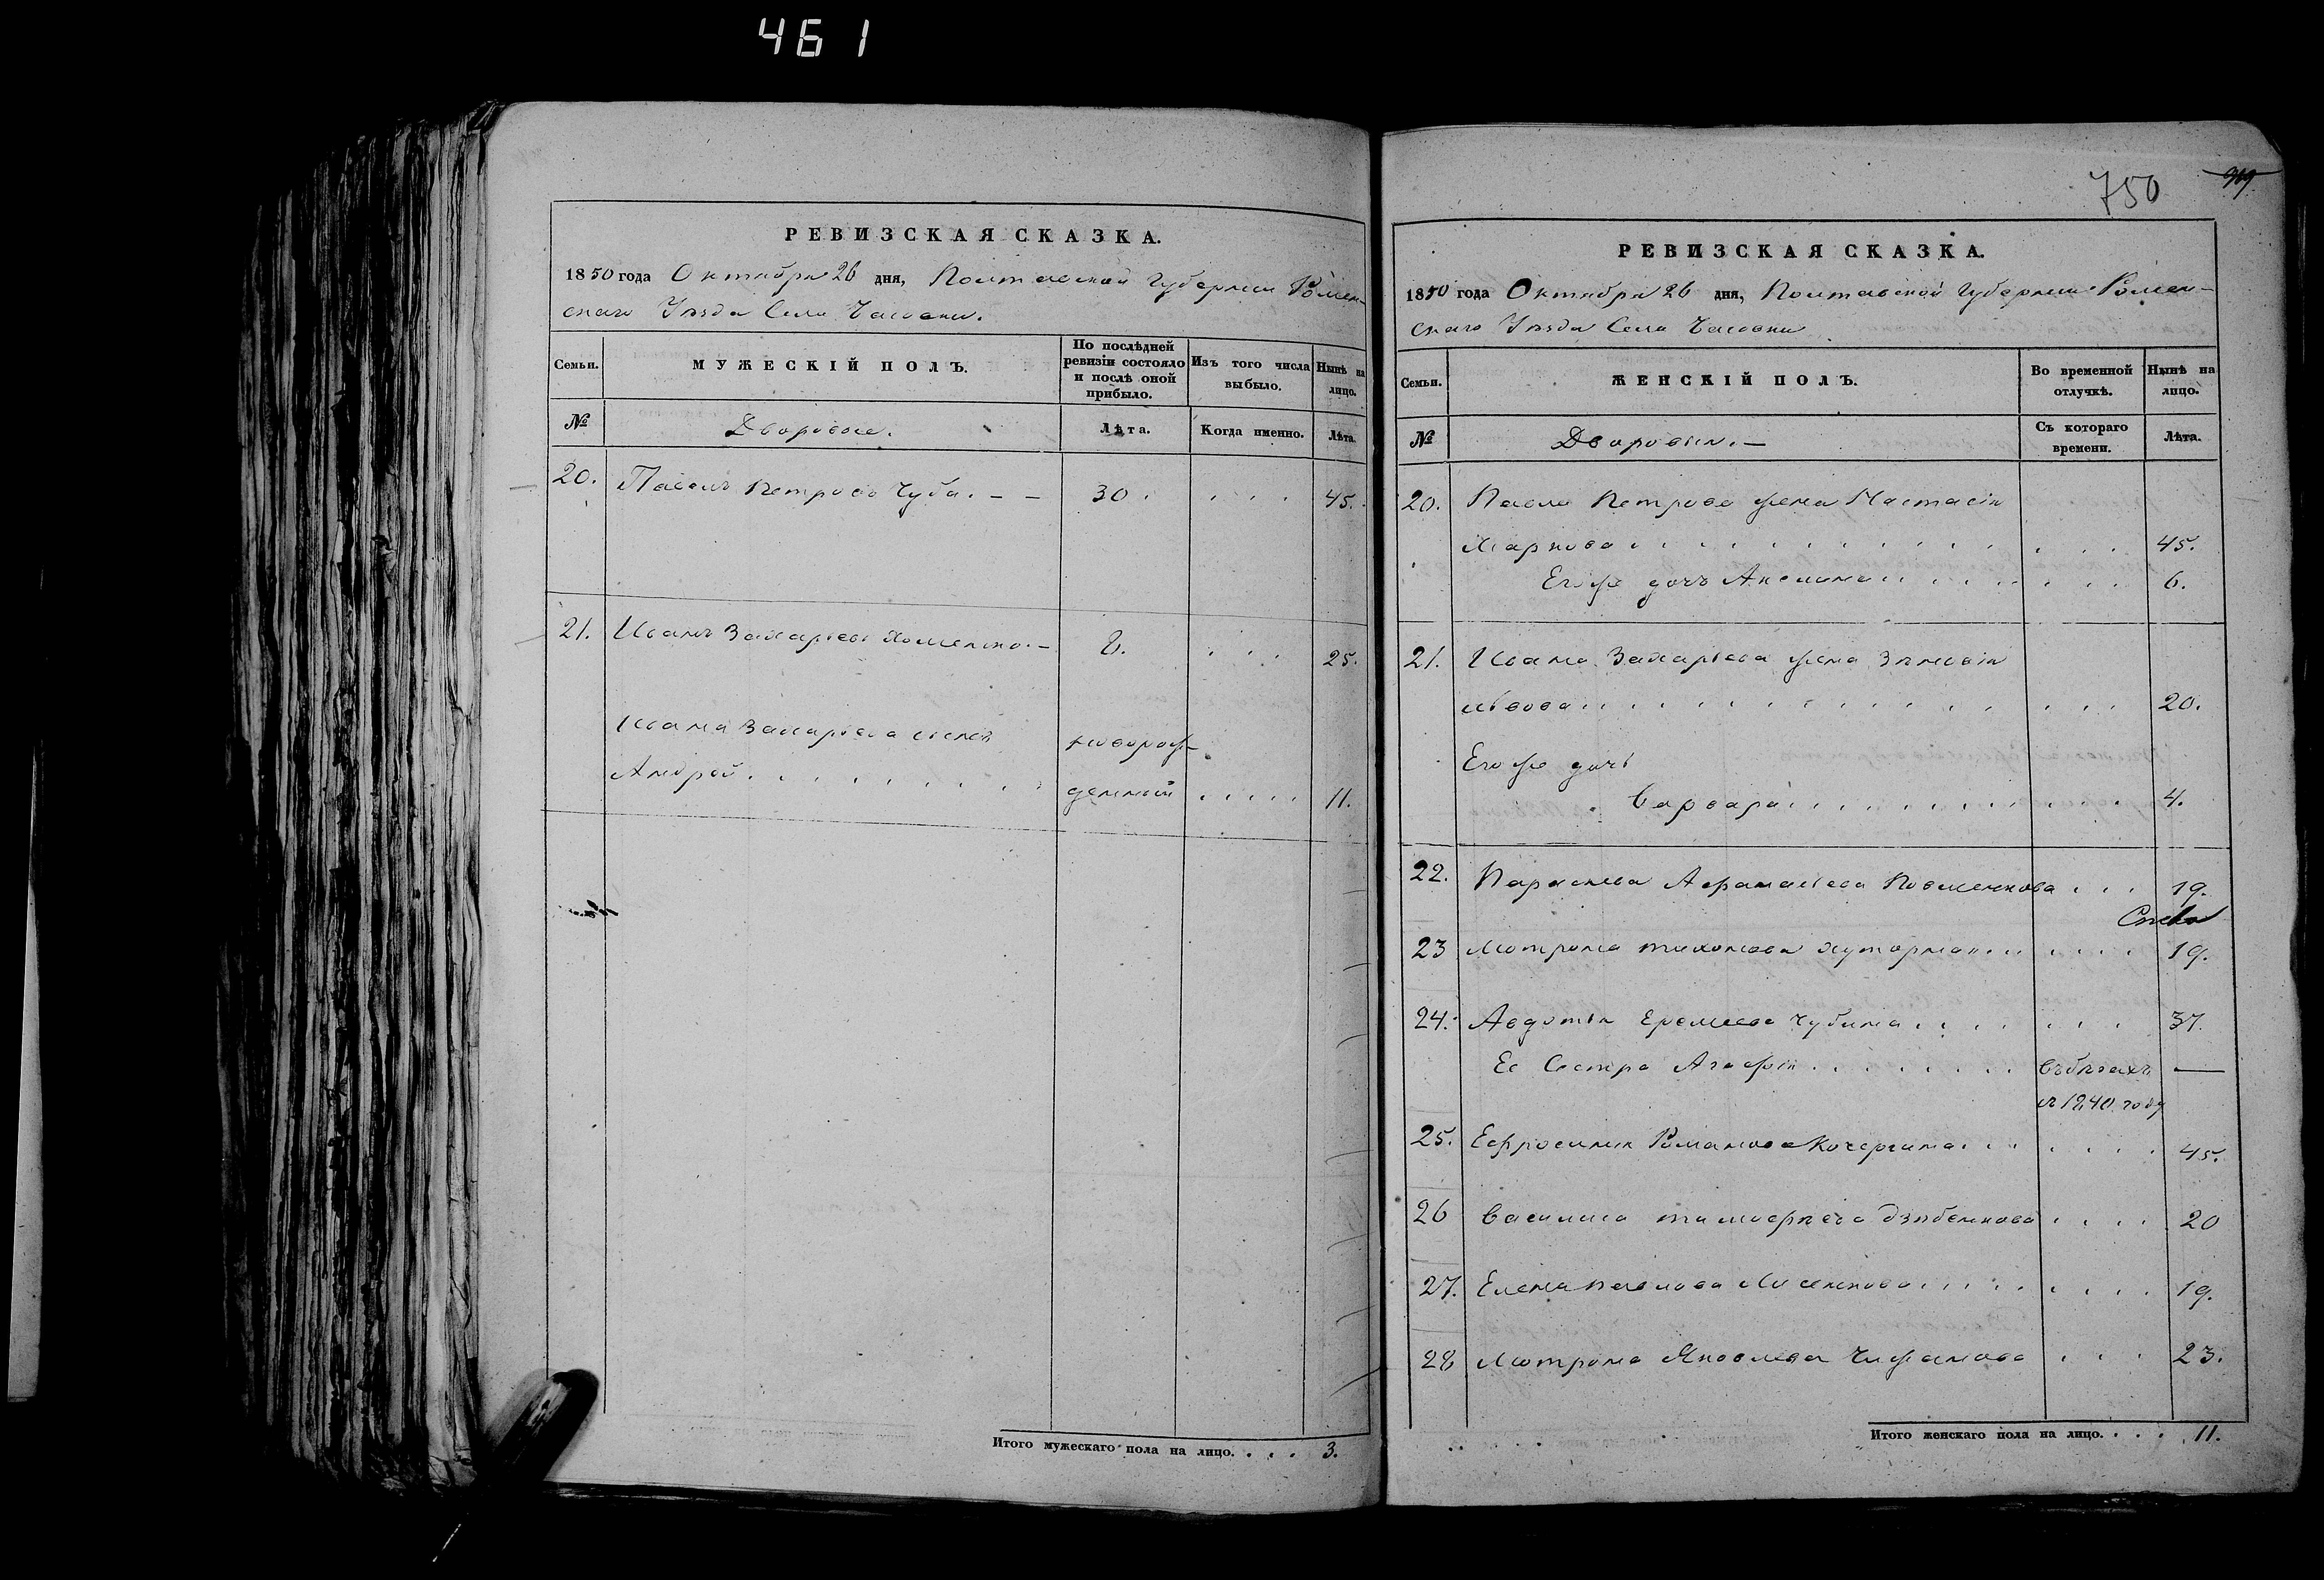 461
РЕВИЗСКАЯ СКАЗКА.
1850 года Октября 26 дня, Полтавской Губернии Ромен-
скаго Уѣзда Села
Семьи.
МУЖЕСКІЙ ПОЛЪ.
По послѣдней ревизіи состояло и послѣ оной прибыло.
Изъ того числа выбыло.
Нынѣ на лицо.
№
Дворовые.
Лѣта.
Когда именно.
Лѣта.
20. Павелъ Петровъ Чуба. — — 30. . . . 45.
21. Иванъ Захарьевъ Хоменко. — 8. . . . 25.
Ивана Захарьева сынъ новорож-
Андрей . . . . . . . . . денный . . . . . 11.
Итого мужескаго пола на лицо. . . . 3.
750
РЕВИЗСКАЯ СКАЗКА.
1850 года Октября 26 дня, Полтавской Губерніи Ромен-
скаго Уѣзда Села
Семьи.
ЖЕНСКІЙ ПОЛЪ.
Во временной отлучкѣ.
Нынѣ на лицо.
№
Дворовыя. —
Съ котораго времени.
Лѣта.
20. Павла Петрова жена Настасія
Маркова . . . . . . . . . . . . . 45.
Егоже дочь Акелина . . . . . . . . 6.
21. Ивана Захарьева жена Зиновія
Львова . . . . . . . . . . . . . 20.
Егоже дочь
Варвара . . . . . . . . . . . 4.
22. Парасковья . . . 19.
23 Мотрона Тихонова . . . . 19.
24. Авдотья Еремеева Чубина . . . . . . . . 37.
Ее Сестра Агафія . . . . . . . . въ бѣгахъ —
съ 1840 году
25. Ефросинія Романова Кочергина . . . . . . . 45.
26 Василиса Тимофеева . . . . 20
27. Елена Павлова Лисенкова . . . . . . . . . 19.
28 Мотрона Яковлева Чижанова . . . 23.
Итого женскаго пола на лицо. . . . 11.